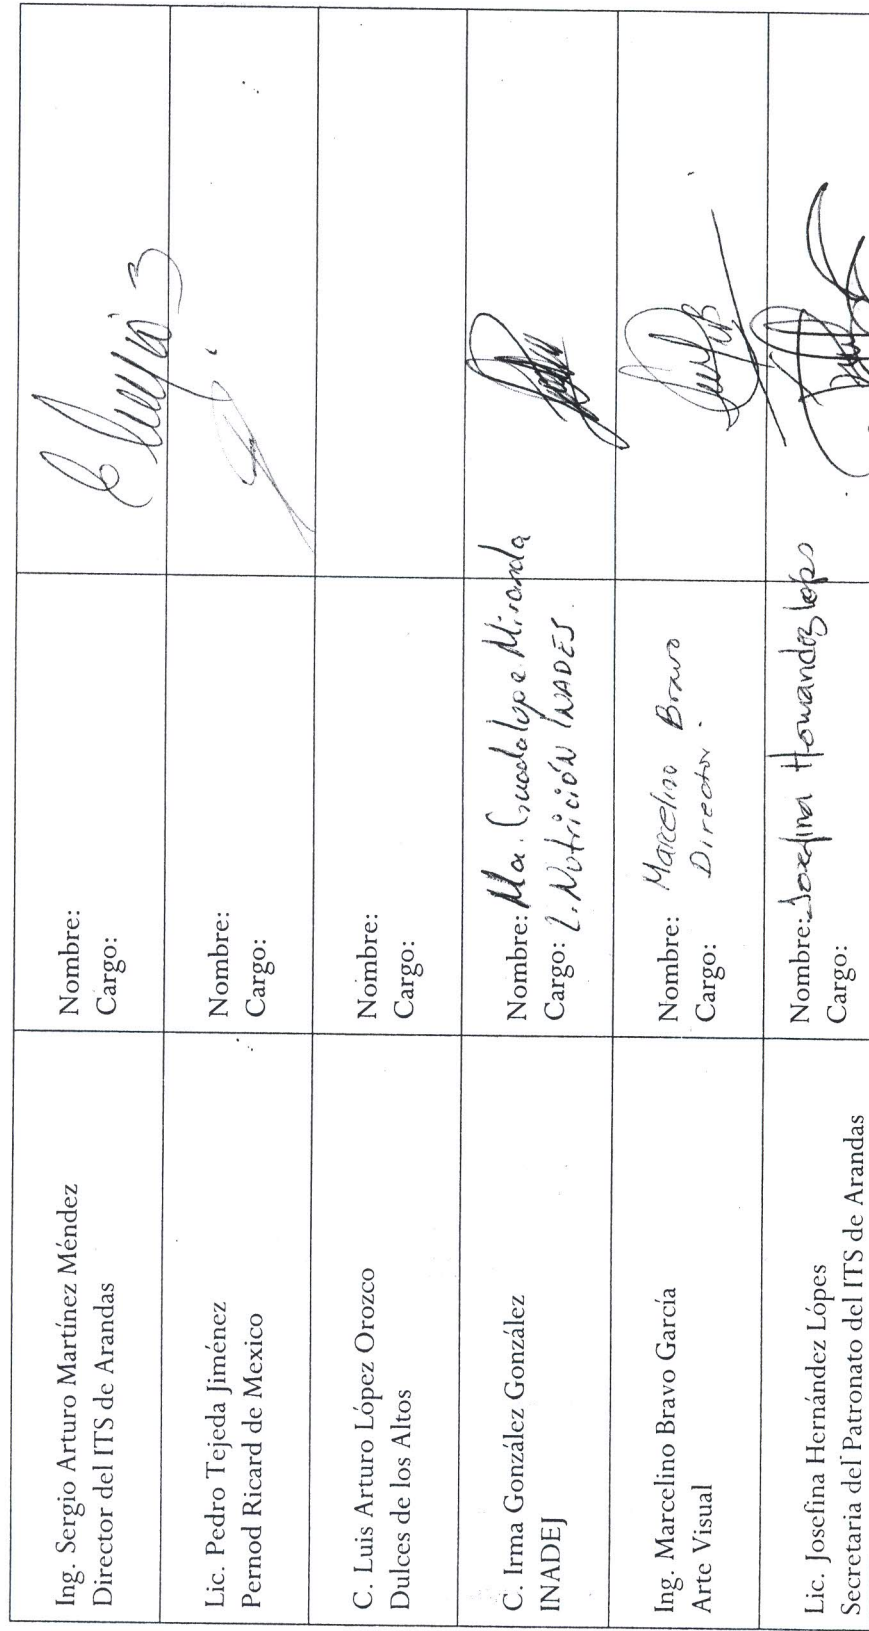 Ing. Sergio Arturo Martínez Méndez
Director del ITS de Arandas
Nombre:
Cargo:
Lic. Pedro Tejeda Jiménez
Pernod Ricard de Mexico
Nombre:
Cargo:
C. Luis Arturo López Orozco
Dulces de los Altos
Nombre:
Cargo:
C. Irma González González
INADEJ
Nombre: Ma. Guadalupe Miranda
Cargo: L. Nutrición INADES.
Ing. Marcelino Bravo García
Arte Visual
Nombre: Marcelino Bravo
Cargo: Director.
Lic. Josefina Hernández Lópes
Secretaria del Patronato del ITS de Arandas
Nombre: Josefina Hernández Lópes
Cargo: